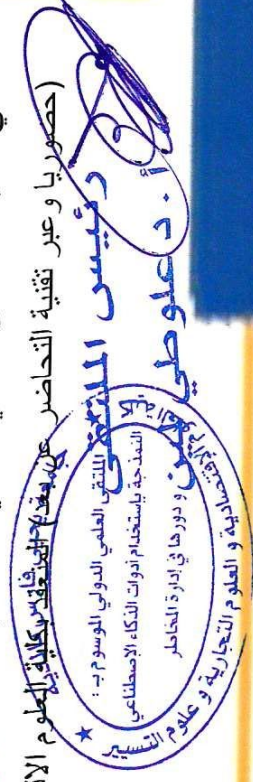 (حضوريا وعبر تقنية التحاضر عن بعد) المنعقد بكلية العلوم الا
رئيس الملتقى
أ.د علوطي لمين
الملتقى العلمي الدولي الموسوم بـ:
النمذجة باستخدام أدوات الذكاء الإصطناعي
و دورها في إدارة المخاطر
العلوم الإقتصادية و العلوم التجارية و علوم التسيير